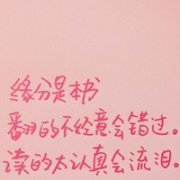 缘分是本书
翻的不经意会错过。
读的太认真会流泪。